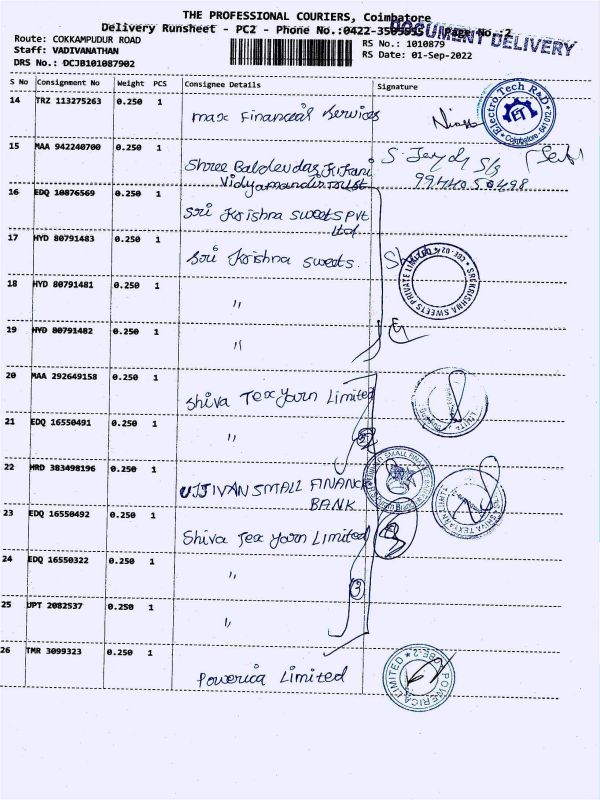 THE PROFESSIONAL COURIERS, Coimbatore
Delivery Runsheet - PC2 - Phone No.:0422-3505055 Page No.:2
DOCUMENT DELIVERY
Route: COKKAMPUDUR ROAD
RS No.: 1010879
Staff: VADIVANATHAN
RS Date: 01-Sep-2022
DRS No.: DCJB101087902
S No Consignment No Weight PCS Consignee Details Signature
14 TRZ 113275263 0.250 1 max Financial Services
Electro Tech R&D
ET
Coimbatore - 641 012
15 MAA 942240700 0.250 1 Shree Baldevdas Kikani
Vidyamandir Trust
16 EDQ 10876569 0.250 1 Sri Krishna Sweets Pvt
Ltd
17 HYD 80791483 0.250 1 Sri Krishna Sweets.
SRI KRISHNA SWEETS PRIVATE LIMITED
18 HYD 80791481 0.250 1 "
19 HYD 80791482 0.250 1 "
20 MAA 292649158 0.250 1 Shiva Tex Yarn Limited
21 EDQ 16550491 0.250 1 "
22 HRD 383498196 0.250 1 UJJIVAN SMALL FINANCE
BANK
23 EDQ 16550492 0.250 1 Shiva Tex Yarn Limited
24 EDQ 16550322 0.250 1 "
25 UPT 2082537 0.250 1 "
26 TMR 3099323 0.250 1 Powerica Limited
POWERICA LIMITED * CBE-2 *